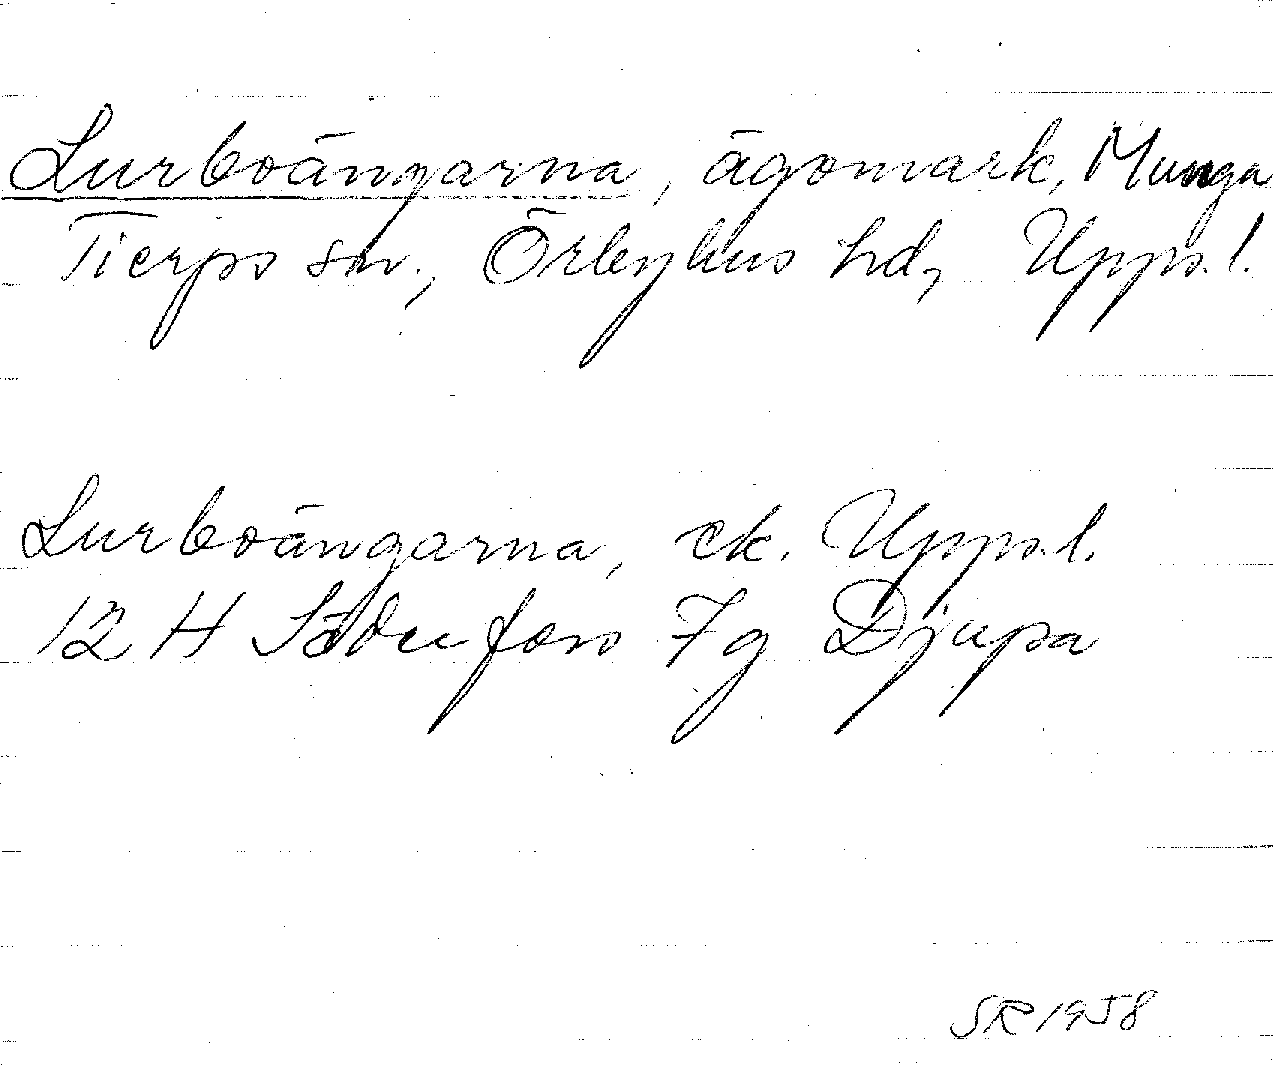 Lurboängarna, ägomark, Munga
Tierps sn., Örbyhus hd, Uppl.
Lurboängarna, ek. Uppl.
12 H Söderfors 7g Djupa
SR 1958